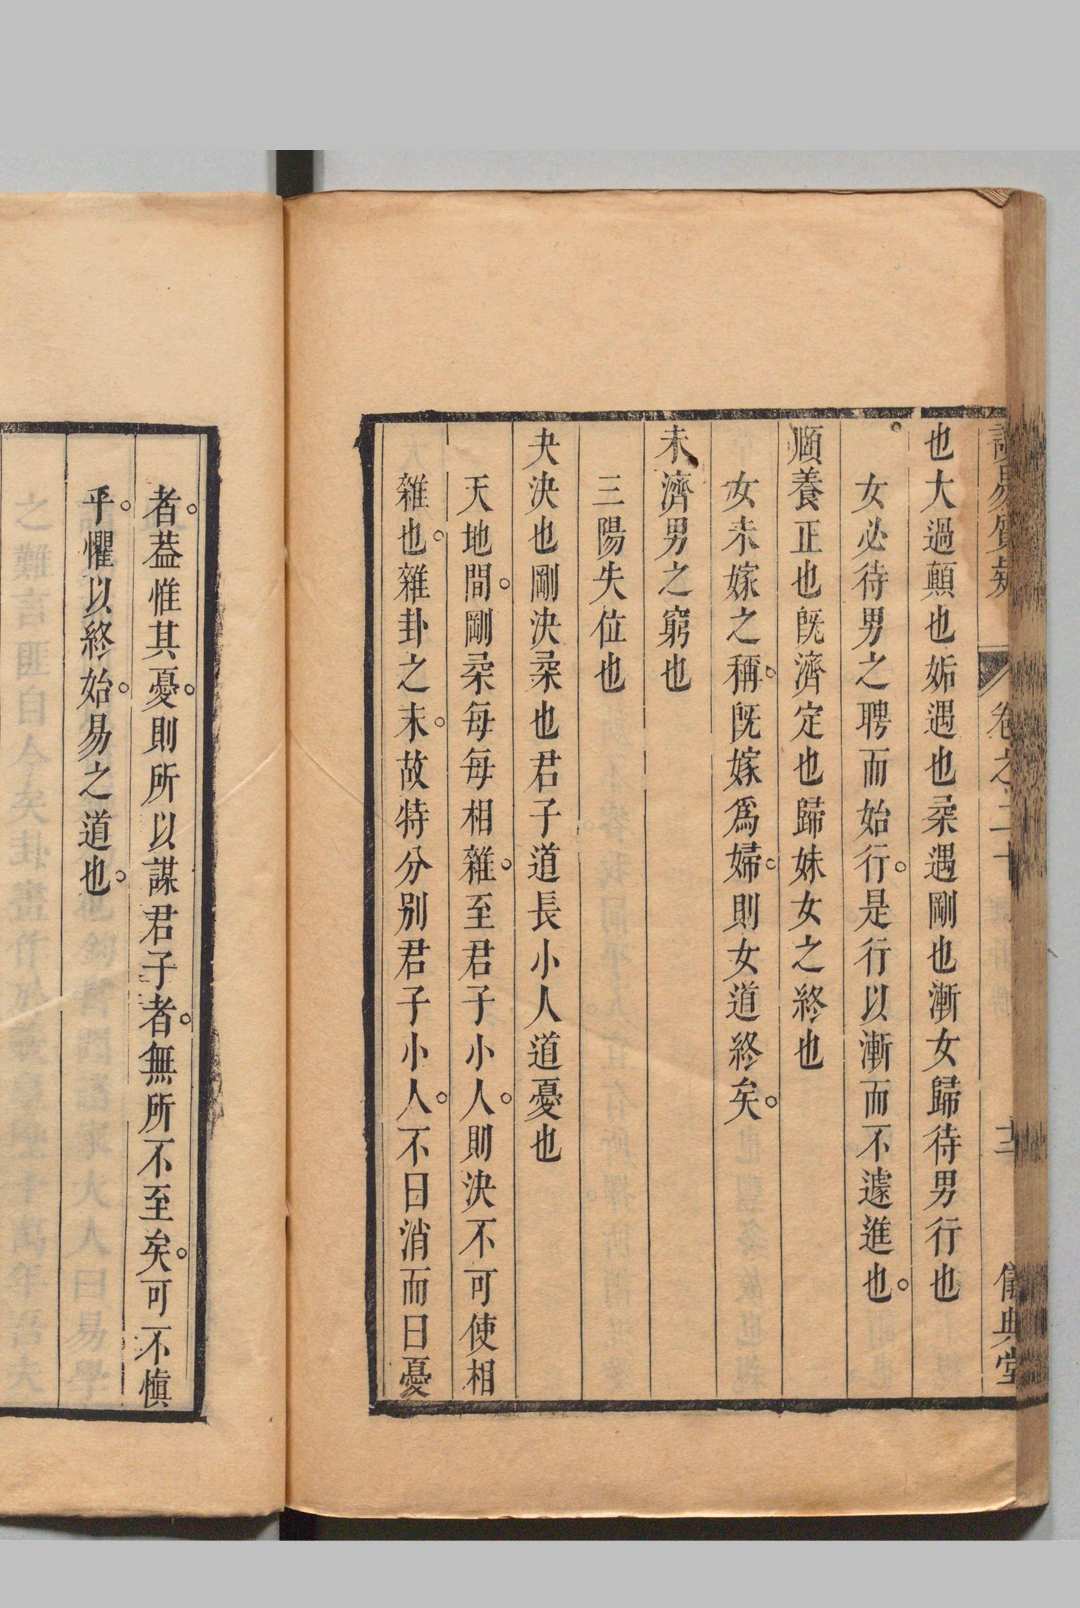 讀易質疑 卷之二十 十三 儀典堂
也大過顛也姤遇也柔遇剛也漸女歸待男行也
女必待男之聘而始行。是行以漸而不遽進也。
頤養正也旣濟定也歸妹女之終也
女未嫁之稱。旣嫁爲婦。則女道終矣。
未濟男之窮也
三陽失位也
夬決也剛決柔也君子道長小人道憂也
天地間。剛柔每每相雜。至君子小人。則決不可使相
雜也。雜卦之末。故特分別君子小人。不曰消而曰憂
者。葢惟其憂。則所以謀君子者。無所不至矣。可不慎
乎。懼以終始。易之道也。